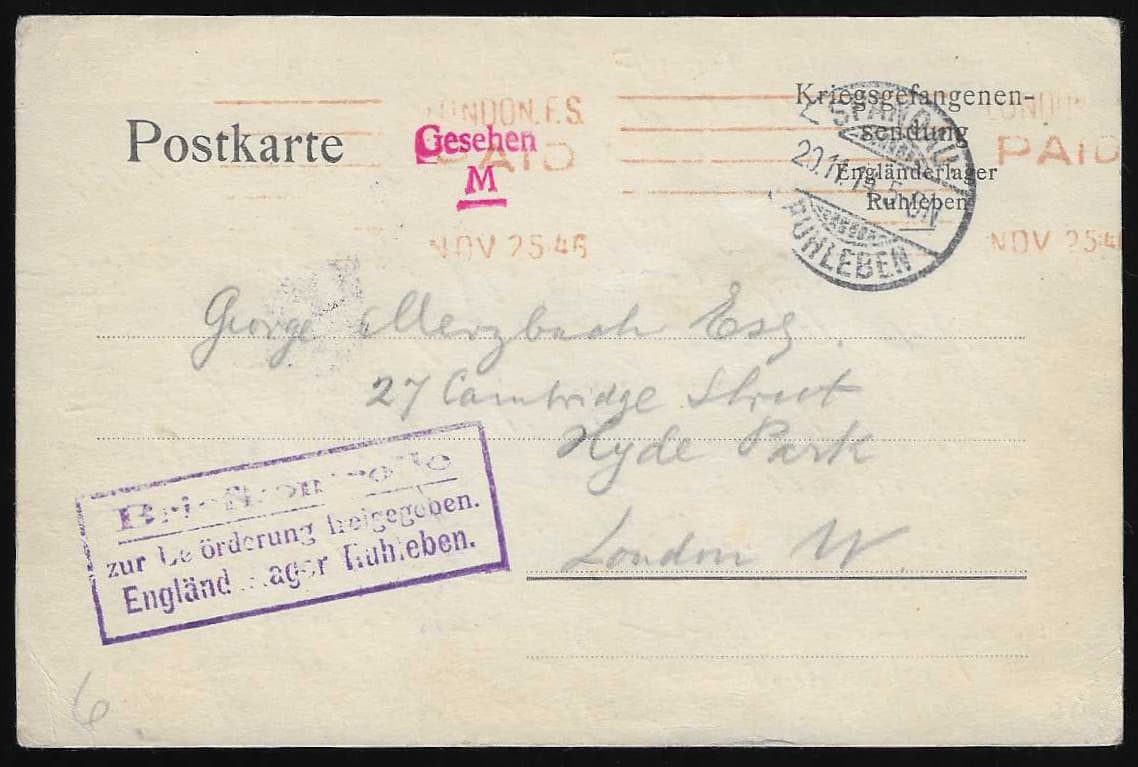 Postkarte
Kriegsgefangenen-
sendung
Engländerlager
Ruhleben
LONDON. F.S.
PAID
NOV 25 46
Gesehen
M
SPANDAU
20.11.14. 5-6N
RUHLEBEN
LONDON
PAID
NOV 25 4
George Merzbach Esq
27 Cambridge Street
Hyde Park
London W
Briefkontrolle
zur Beförderung freigegeben.
Engländerlager Ruhleben.
6